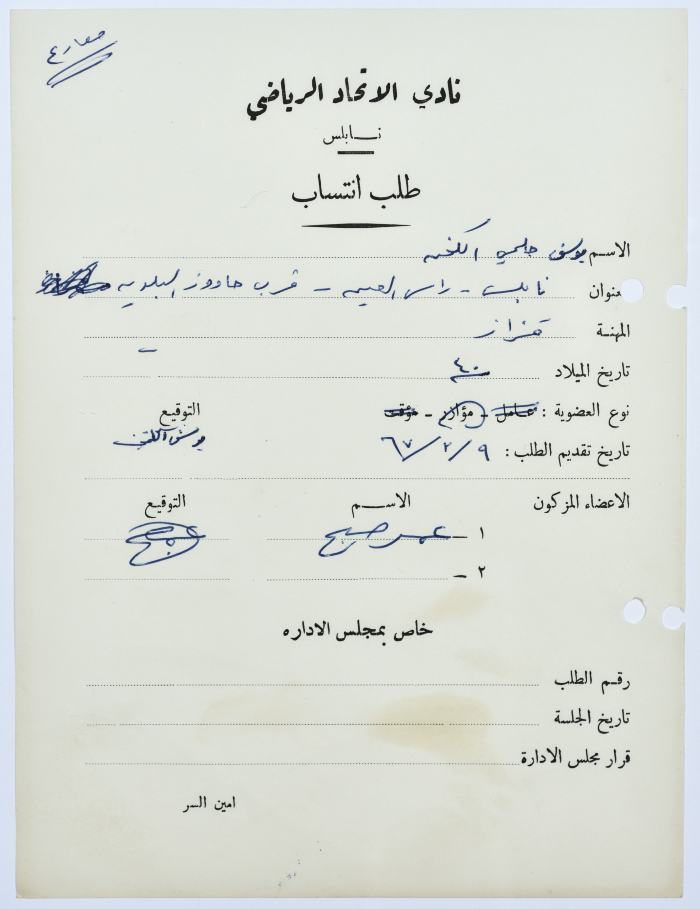 مصارع
نادي الاتحاد الرياضي
نابلس
طلب انتساب
الاسم يوسف حلمي الكخن
العنوان نابلس - راس العين - قرب حاووز البلديه
المهنة قزاز
تاريخ الميلاد ٤٠
نوع العضوية : عامل - مؤازر - مؤقت التوقيع
تاريخ تقديم الطلب : ٩/٢/٦٧ يوسف الكخن
الاعضاء المزكون الاسم التوقيع
١ - عمر
٢ -
خاص بمجلس الاداره
رقم الطلب
تاريخ الجلسة
قرار مجلس الادارة
امين السر